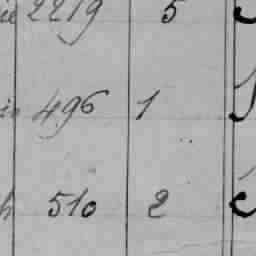 2219 5
496 1
510 2